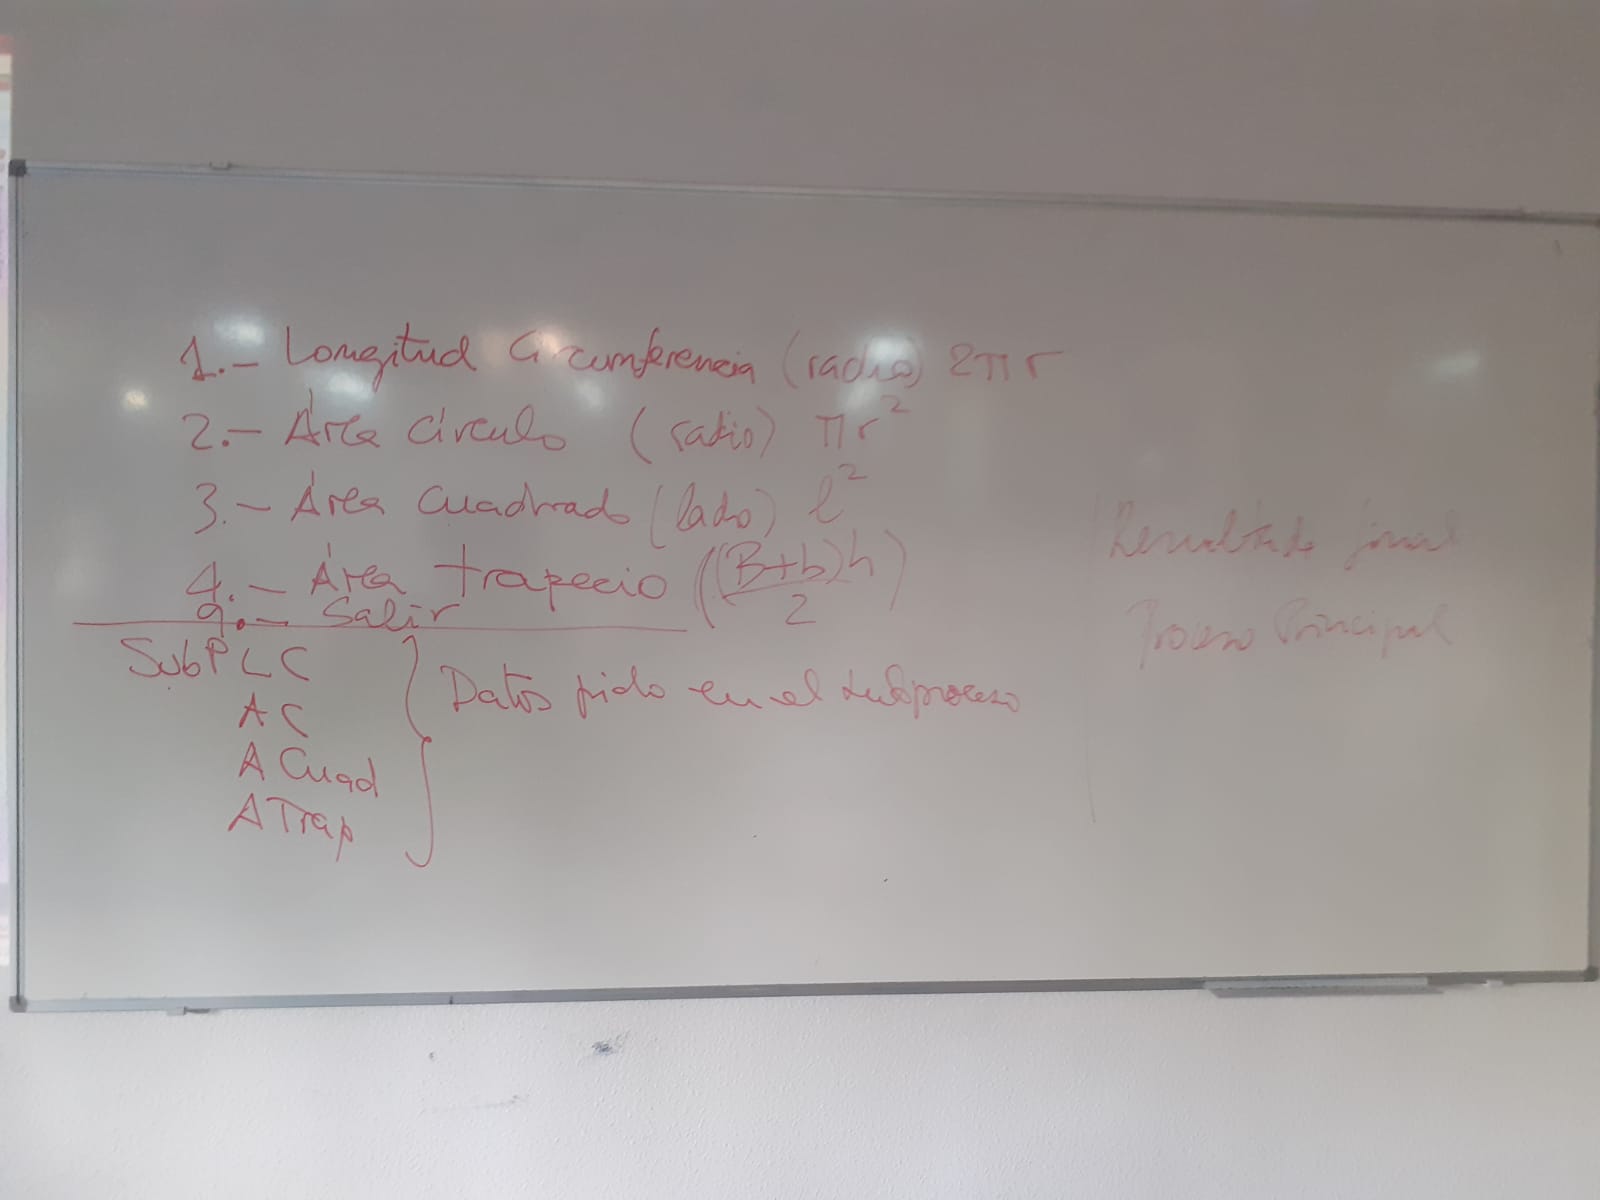 1.- Longitud Circumferencia (radio) 2πr
2.- Área círculo (radio) πr²
3.- Área cuadrado (lado) l²
4.- Área trapecio ((B+b)h/2)
9.- Salir
SubP LC
AC
ACuad
ATrap
Datos pido en el subproceso
Resultado final
Proceso Principal